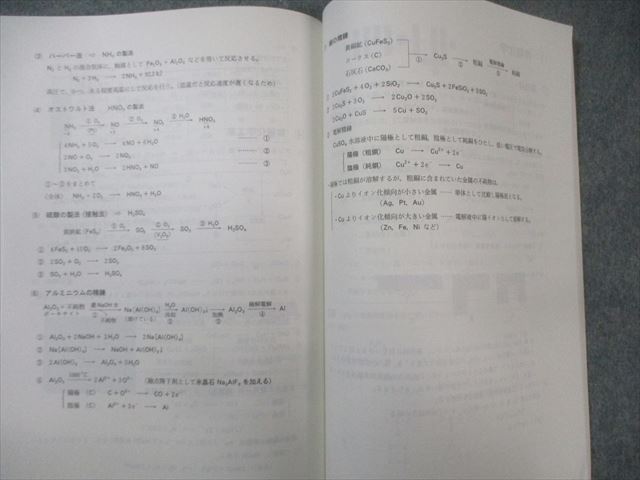 ③ ハーバー法 ⇒ NH₃の製法
N₂とH₂の混合気体に、触媒として Fe₃O₄+Al₂O₃ などを用いて反応させる。
N₂+3H₂ → 2NH₃+92.2kJ
④ オストワルト法 HNO₃の製法
NH₃ → NO → NO₂ → HNO₃
4NH₃+5O₂ → 4NO+6H₂O ①
2NO+O₂ → 2NO₂ ②
3NO₂+H₂O → 2HNO₃+NO ③
①〜③をまとめて
(全体) NH₃+2O₂ → HNO₃+H₂O
⑤ 硫酸の製法(接触法) ⇒ H₂SO₄
黄鉄鉱(FeS₂) ①O₂ → SO₂ ②O₂ (V₂O₅) → SO₃ ③H₂O → H₂SO₄
① 4FeS₂+11O₂ → 2Fe₂O₃+8SO₂
② 2SO₂+O₂ → 2SO₃
③ SO₃+H₂O → H₂SO₄
⑥ アルミニウムの精錬
Al₂O₃+不純物 濃NaOH水 → Na[Al(OH)₄] H₂O → Al(OH)₃↓ → Al₂O₃ 融解電解 → Al
ボーキサイト ① (溶けている) ② 加熱 ③ ④
① Al₂O₃+2NaOH+3H₂O → 2Na[Al(OH)₄]
② Na[Al(OH)₄] → NaOH+Al(OH)₃↓
③ 2Al(OH)₃ → Al₂O₃+3H₂O
④ Al₂O₃ 1000℃ → 2Al³⁺+3O²⁻ (融点降下剤として氷晶石 Na₃AlF₆を加える)
陽極 (C) C+O²⁻ → CO+2e⁻
陰極 (C) Al³⁺+3e⁻ → Al
銅の精錬
黄銅鉱(CuFeS₂)
コークス(C) → Cu₂S → 粗銅 電解精錬 → 純銅
石灰石(CaCO₃) ① ② ③
2CuFeS₂+4O₂+2SiO₂ → Cu₂S+2FeSiO₃+3SO₂
2Cu₂S+3O₂ → 2Cu₂O+2SO₂
電解精錬
CuSO₄水溶液中に陽極として粗銅、陰極として純銅をひたし、低い電圧で電気分解する。
陽極(粗銅) Cu → Cu²⁺+2e⁻
陰極(純銅) Cu²⁺+2e⁻ → Cu
陽極では粗銅が溶解するが、粗銅に含まれていた金属の不純物は、
・Cuよりイオン化傾向が小さい金属 …… 単体として沈殿し陽極泥となる。
(Ag, Pt, Au)
・Cuよりイオン化傾向が大きい金属 …… 電解液中に陽イオンとして溶解する。
(Zn, Fe, Niなど)